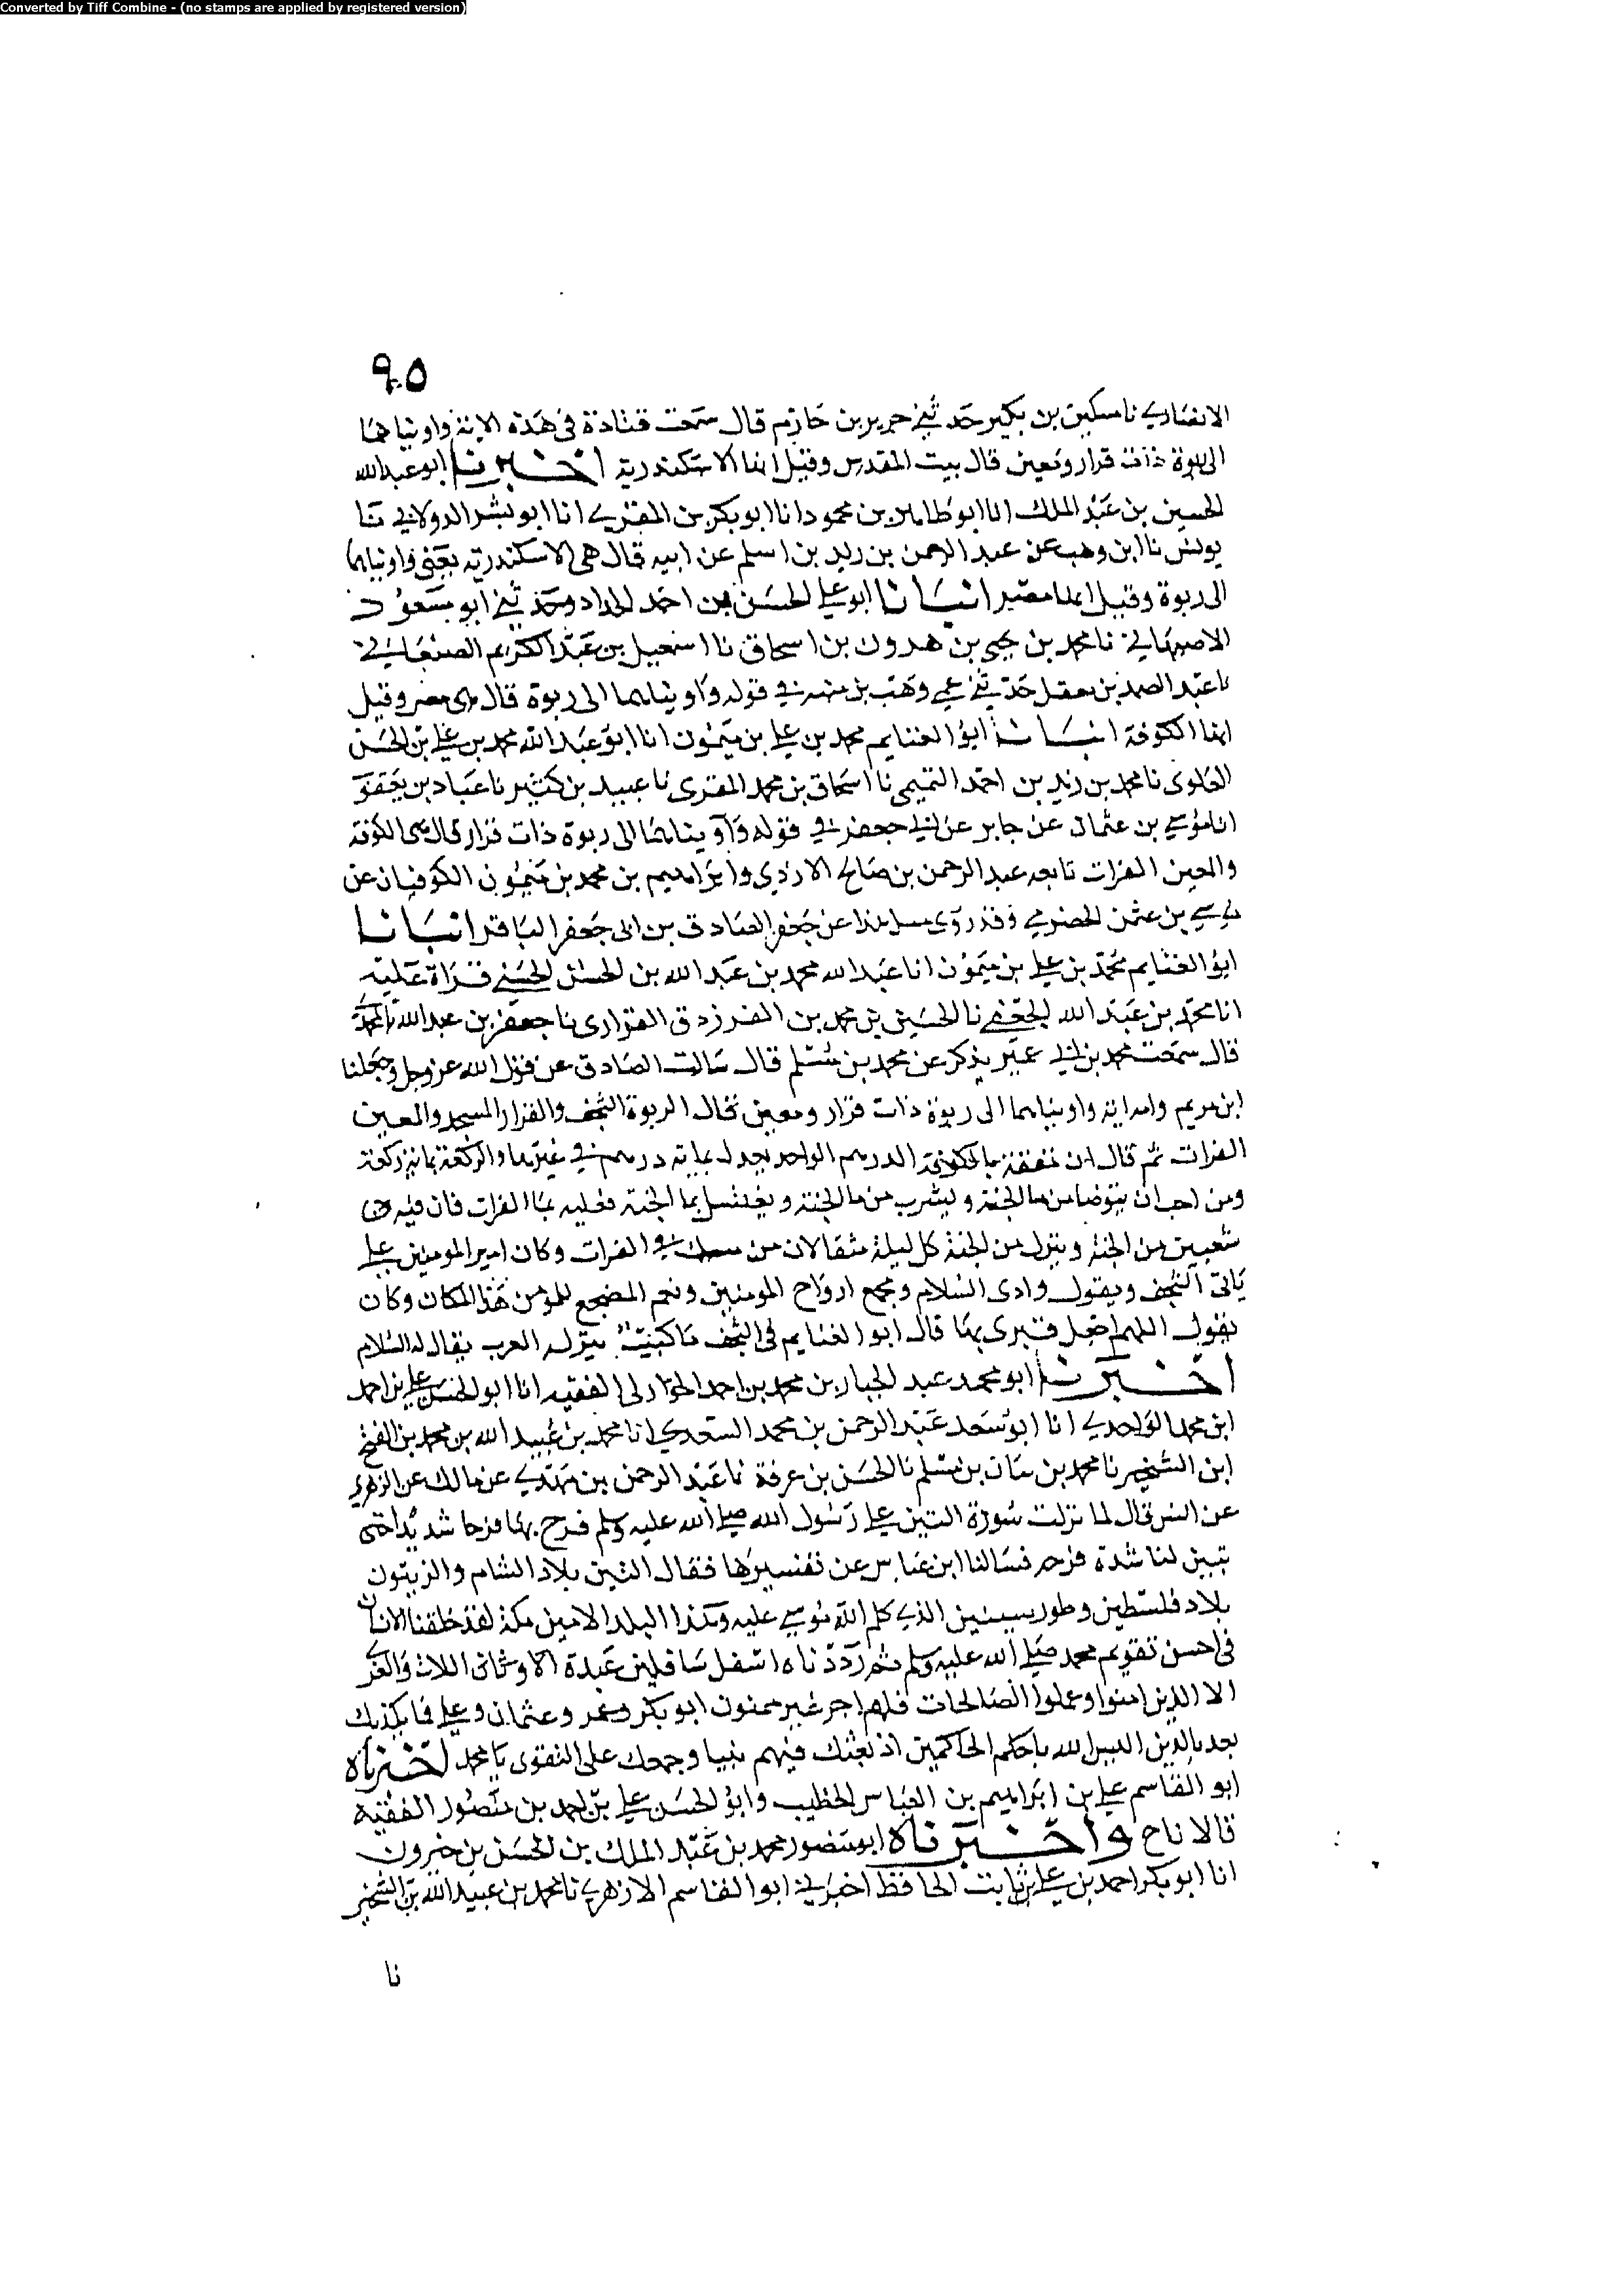 Converted by Tiff Combine - (no stamps are applied by registered version)
٩٥
الانصاري نا مسكين بن بكير حدثني جرير بن حازم قال سمعت قتادة في هذه الاية واويناهما
الى ربوة ذات قرار ومعين قال بيت المقدس وقيل انها الاسكندرية اخبرنا ابو عبد الله
الحسين بن عبد الملك انا ابو طاهر بن محمود انا ابو بكر بن المقرى انا ابو بشر الدولابي نا
يونس نا ابن وهب عن عبد الرحمن بن زيد بن اسلم عن ابيه قال هي الاسكندرية يعني واويناهما
الى ربوة وقيل انها مصر انبانا ابو علي الحسن بن احمد الحداد وحدثني ابو مسعود
الاصبهاني نا محمد بن يحيى بن هرون بن اسحاق نا اسمعيل بن عبد الكريم الصنعاني
نا عبد الصمد بن معقل حدثني عمي وهب بن منبه في قوله واويناهما الى ربوة قال هي مصر وقيل
انها الكوفة انبانا ابو الغنايم محمد بن علي بن ميمون انا ابو عبد الله محمد بن علي بن الحسن
العلوى نا محمد بن زيد بن احمد التميمي نا اسحاق بن محمد المقرى نا عبيد بن كثير نا عباد بن يعقو
انا موسي بن عثمان عن جابر عن ابي جعفر في قوله واويناهما الى ربوة ذات قرار قال هي الكوفة
والمعين الفرات تابعه عبد الرحمن بن صالح الازدي وابراهيم بن محمد بن ميمون الكوفيان عن
موسي بن عثمن الحضرمي وقد روى مثل هذا عن جعفر الصادق بن ابي جعفر الباقر انبانا
ابو الغنايم محمد بن علي بن ميمون انا عبد الله محمد بن عبد الله بن الحسين الحسني قراة عليه
انا محمد بن عبد الله الجعفي نا الحسين بن محمد بن الفرزدق الفزارى نا جعفر بن عبد الله نا محمد
قال سمعت محمد بن ابي عمير يذكر عن محمد بن مسلم قال سالت الصادق عن قول الله عز وجل وجعلنا
ابن مريم وامه اية واويناهما الى ربوة ذات قرار ومعين فقال الربوة النجف والقرار المسجد والمعين
الفرات ثم قال ان نفقة بالكوفة الدرهم الواحد يعدل بماية درهم في غيرها والركعة بماية ركعة
ومن احب ان يتوضا من ما الجنة ويشرب من ما الجنة ويغتسل بما الجنة فعليه بما الفرات فان فيه
شعبين من الجنة وينزل من الجنة كل ليلة مثقالان من مسك في الفرات وكان امير المومنين علي
ياتي النجف ويقول وادى السلام ومجمع ارواح المومنين ونعم المضجع للمؤمن هذا المكان وكان
يقول اللهم اجعل قبرى بها قال ابو الغنايم في النجف منزل العرب يقال له السلام
اخبرنا ابو محمد عبد الجبار بن محمد بن احمد الخوارى الفقيه انا ابو الحسن علي بن احمد
ابن محمد الواحدي انا ابو سعد عبد الرحمن بن محمد السعدي انا محمد بن عبيد الله بن محمد بن الفتح
ابن الشخير نا محمد بن بيان بن مسلم نا الحسن بن عرفة نا عبد الرحمن بن مهدي عن مالك عن الزهري
عن انس قال لما نزلت سورة التين علي رسول الله صلي الله عليه وسلم فرح بها فرحا شديدا حتى
تبين لنا شدة فرحه فسالنا ابن عباس عن تفسيرها فقال التين بلاد الشام والزيتون
بلاد فلسطين وطور سينين الذي كلم الله موسي عليه وهذا البلد الامين مكة لقد خلقنا الانسان
في احسن تقويم محمد صلي الله عليه وسلم ثم رددناه اسفل سافلين عبدة الاوثان اللات والعز
الا الذين امنوا وعملوا الصالحات فلهم اجر غير ممنون ابو بكر وعمر وعثمان وعلي فما يكذبك
بعد بالدين اليس الله باحكم الحاكمين اذ بعثك فيهم نبيا وجمعك على التقوى يا محمد اخبرناه
ابو القاسم علي بن ابراهيم بن العباس الخطيب وابو الحسن علي بن احمد بن منصور الفقيه
قالا نا ح واخبرناه ابو منصور محمد بن عبد الملك بن الحسن بن خيرون
انا ابو بكر احمد بن علي بن ثابت الحافظ اخبرني ابو القاسم الازهري نا محمد بن عبيد الله بن الشخير
نا